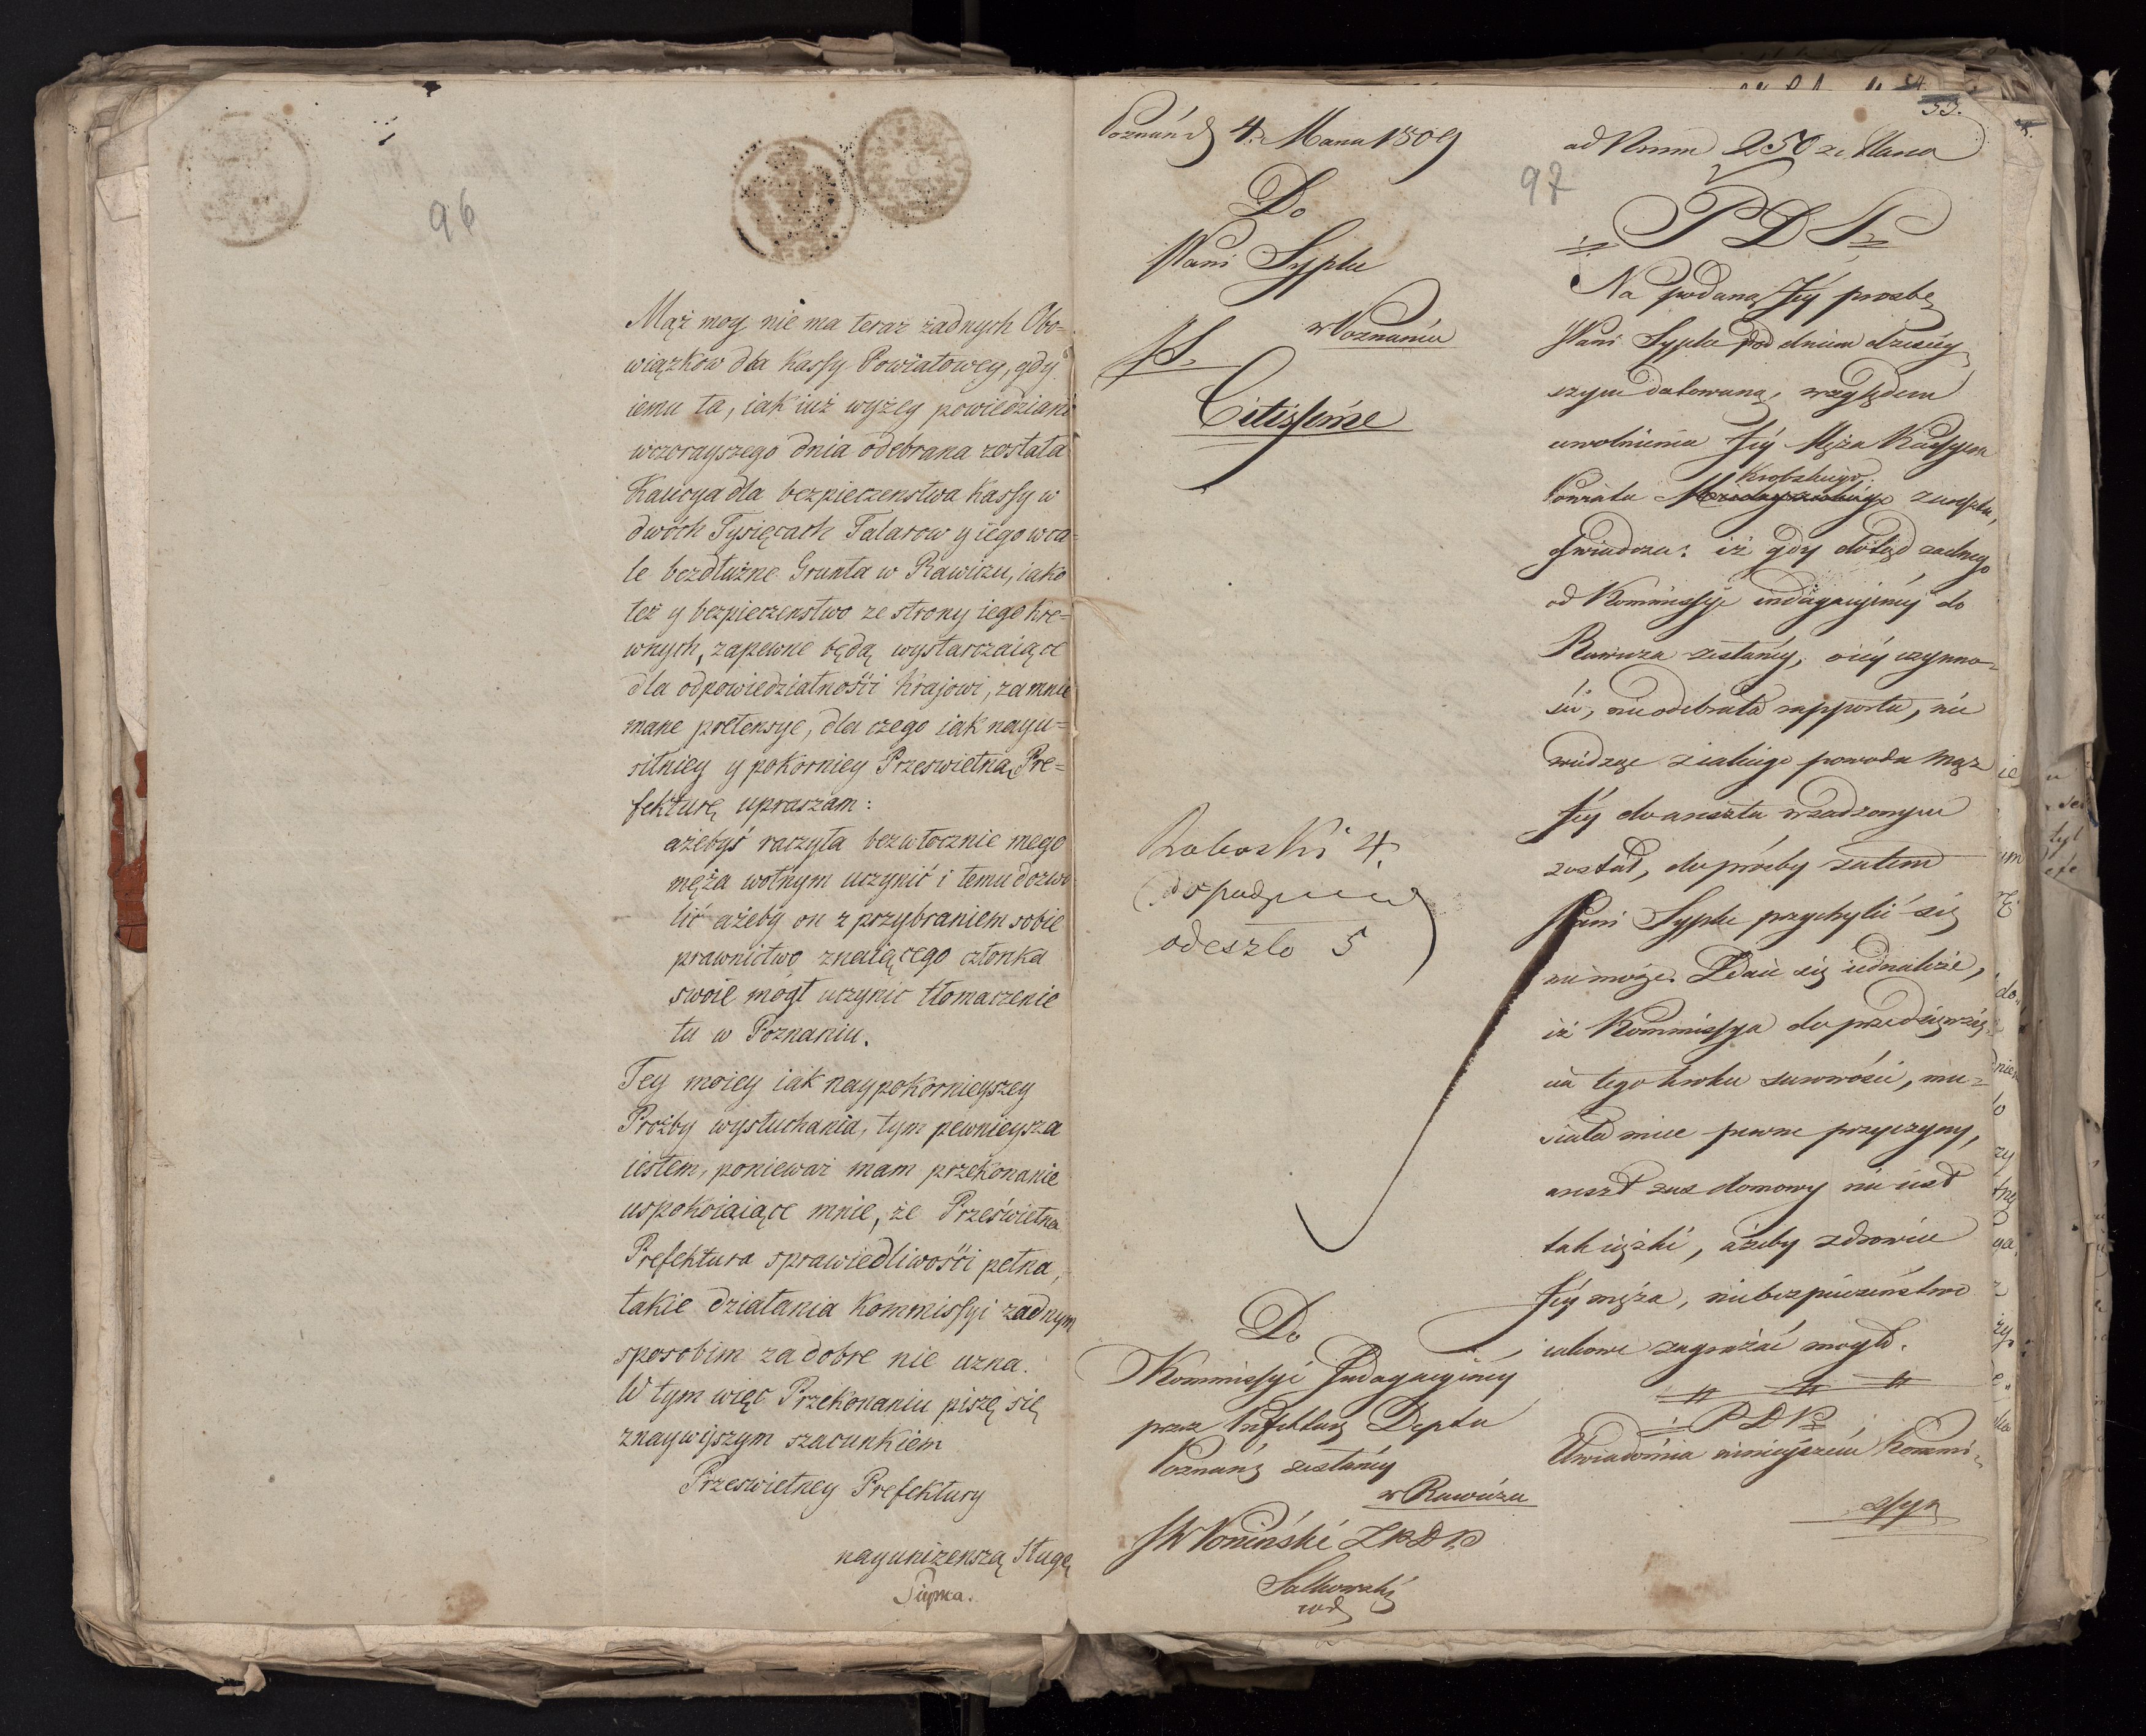 96
Mąż moy nie ma teraz żadnych Obo=
wiązkow dla Kassy Powiatowey, gdy
iemu ta, iak iuż wyżey powiedziano
wczorayszego dnia odebrana została
Kaucya dla bezpieczenstwa Kassy w
dwóch Tysięcach Talarow y iego wca=
le bezdłużne Grunta w Rawiczu, iako
też y bezpieczenstwo ze strony iego kre=
wnych, zapewne będą wystarczaiące
dla odpowiedzialnośći Krajowi, za mnie
mane pretensye, dla czego iak nayu=
silniey y pokorniey Przeswietną Pre=
fekturę upraszam:
ażebyś raczyła bezwłocznie mego
męża wolnym uczynić i temu dozwo
lić ażeby on z przybraniem sobie
prawnictwo znaiącego członka
swoie mógł uczynic tłomaczenie
tu w Poznaniu.
Tey moiey iak naypokornieyszey
Proźby wysłuchania, tym pewnieysza
iestem, ponieważ mam przekonanie
uspokoiaiące mnie, że Prześwietna
Prefektura sprawiedliwośći pełna,
takie działania Kommissyi żadnym
sposobim za dobre nie uzna.
W tym więc Przekonaniu piszę się
z naywyszym szacunkiem
Przeswietney Prefektury
nayunizenszą Sługą
Poznań d 4. Marca 1809
Do
Pani Sypke
w Poznaniu
Citissime
odeszło 5
Do
Kommissyi Indagacyiney
przez Prefekturę Deptu
Poznans zesłaney
w Rawiczu
Poniński
53.
97
ad Num 250 ze Marca
P D P
Na podaną Jey prozbę
Pani Sypke pod dniem dzisiey
szym datowaną, względem
uwolnienia Jey Męża Kassyera
Powiatu Krobskiego z aresztu,
oświadcza: iż gdy dotąd żadnego
od Kommissyi indagacyiney do
Rawicza zesłaney, o iey czynno=
ści, nie odebrała rapportu, nie
widzęc z iakiego powodu mąż
Jey do aresztu wsadzonym
został, do próźby zatem
Pani Sypke przychylić się
nie może. Zdaie się iednakże,
iż Kommissya do przedsięwzię=
cia tego kroku surowości, mu=
siała miec pewne przyczyny,
areszt zas domowy nie iest
tak cięzki, ażeby zdrowiu
Jey męża, niebezpieczeństwo
iakowe zagrażać mogło.
P D P
Uwiadomia ninieyszem Kommi=
ssyą